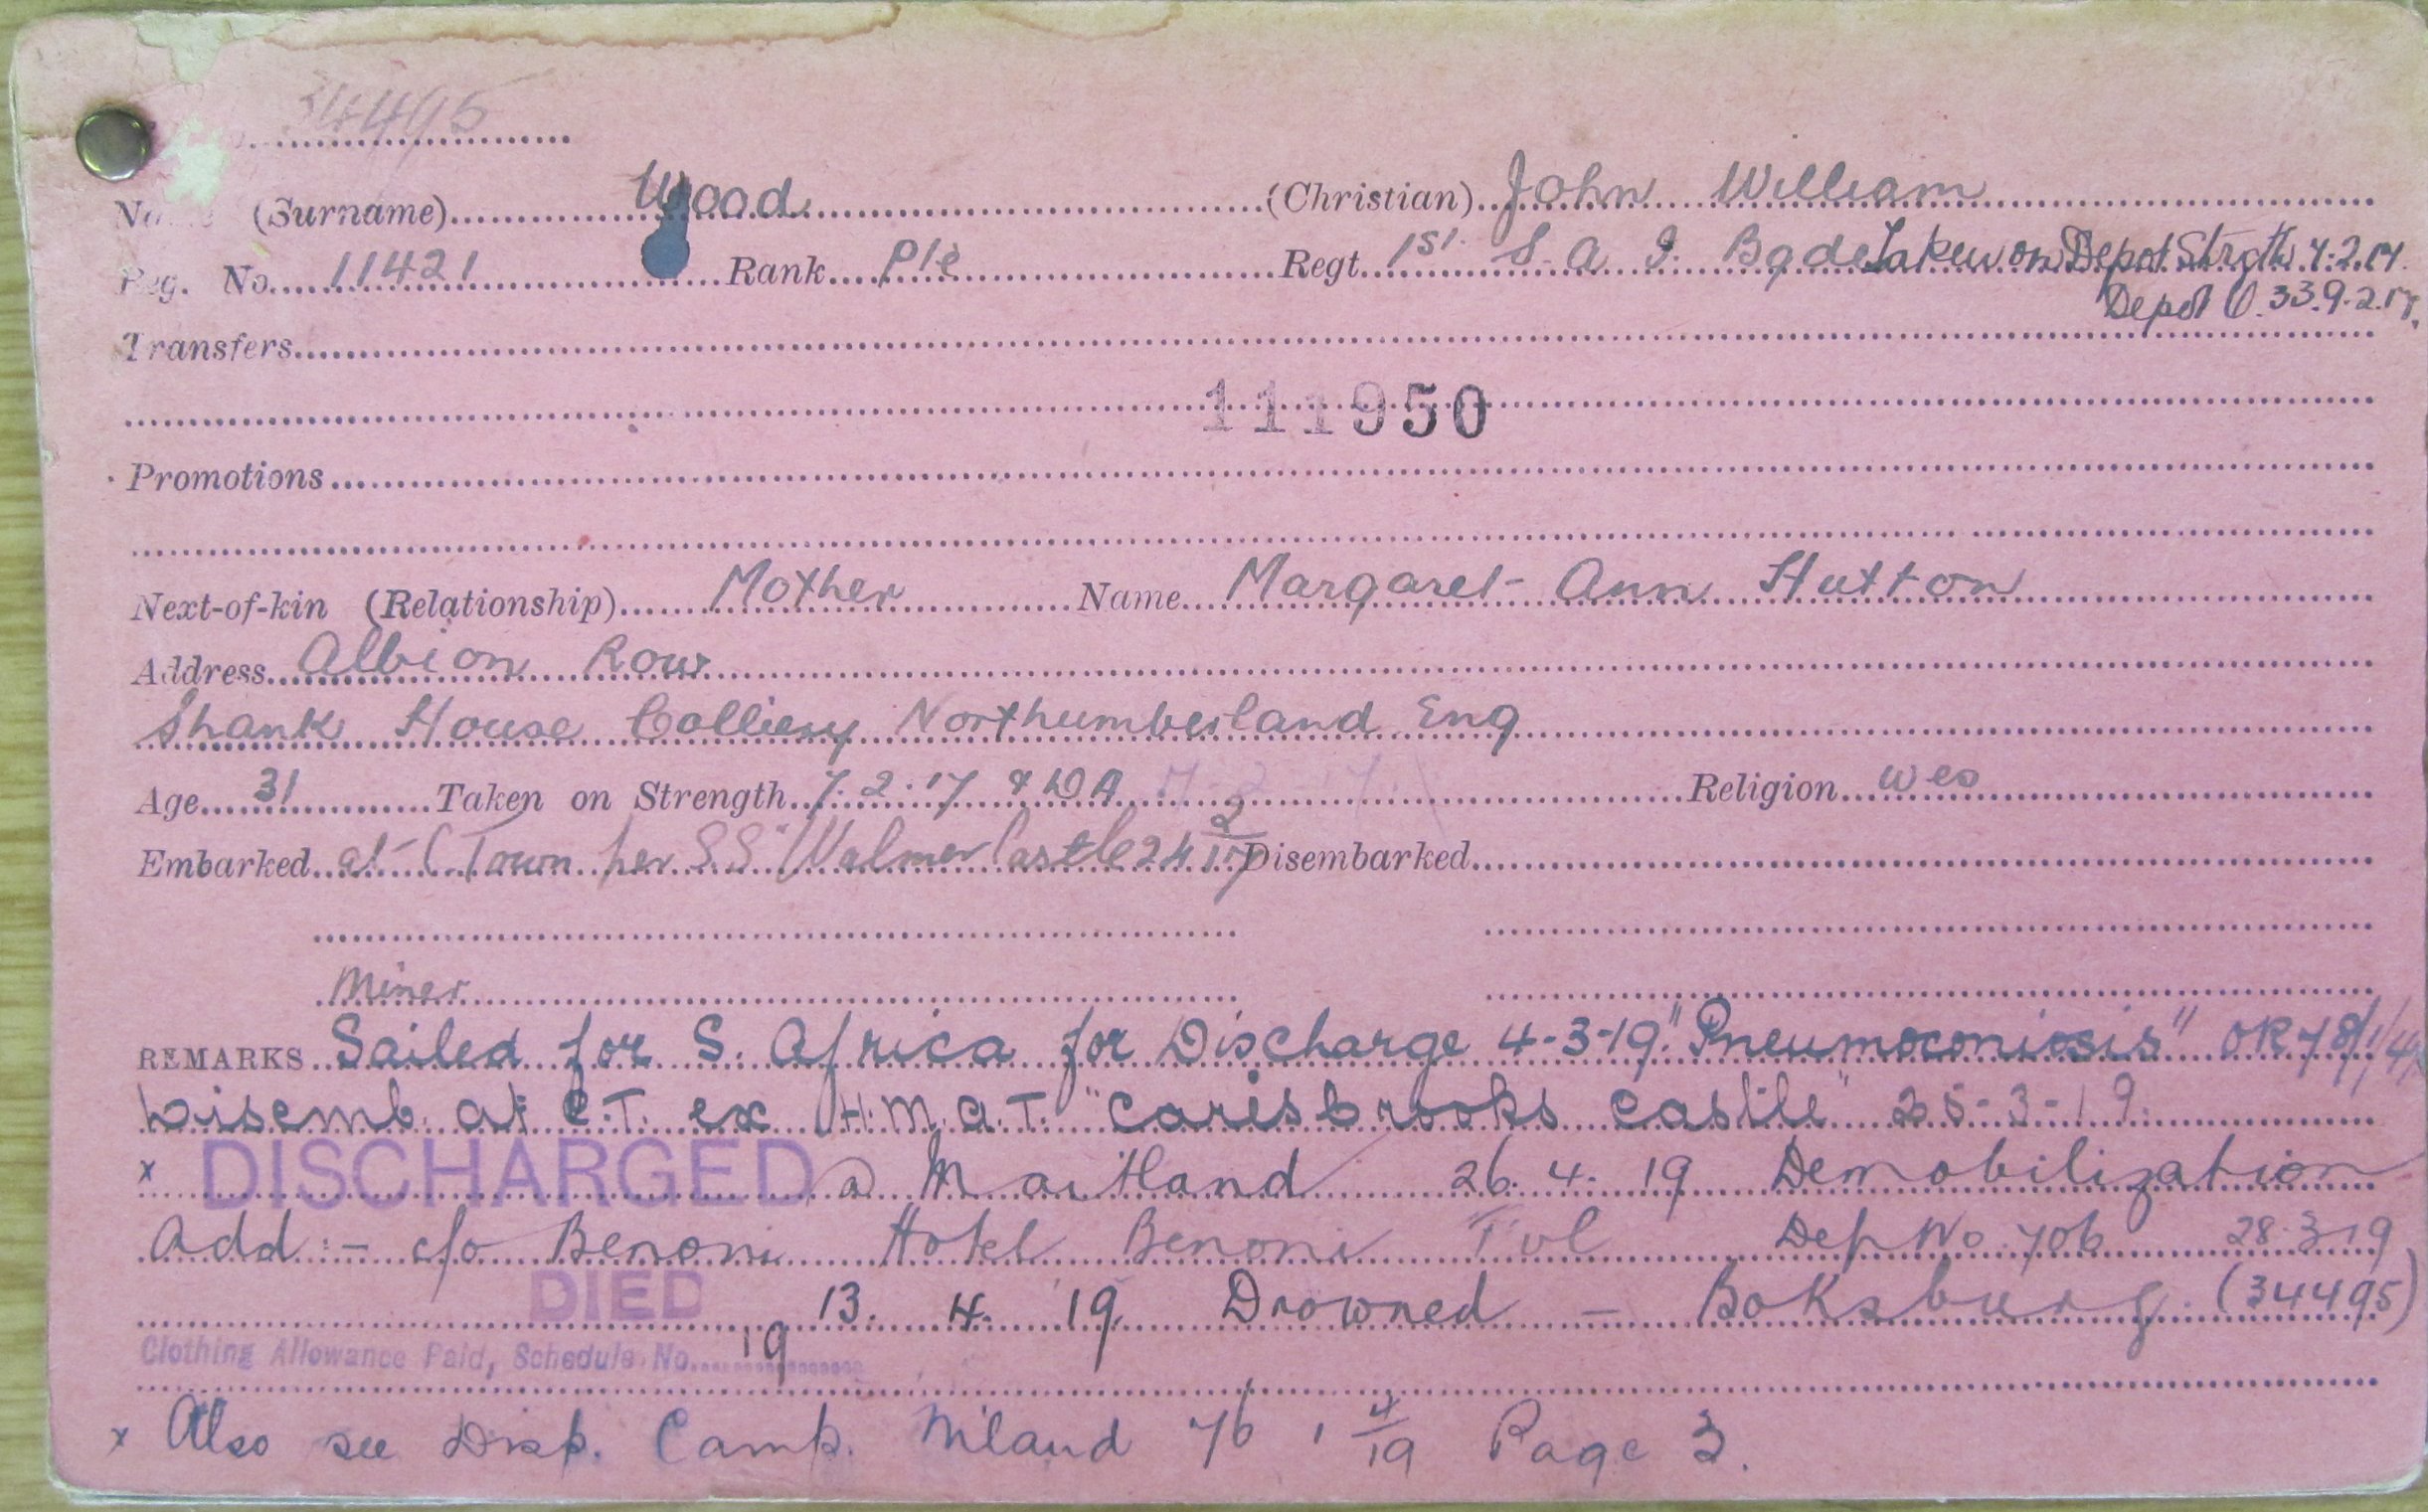 34495
Name (Surname) Wood (Christian) John William
Reg. No. 11421 Rank Pte Regt. 1st. S. A. I. Bgde Taken on Depot Strgth 7.2.17.
Depot O. 33. 9.2.17.
Transfers
111950
Promotions
Next-of-kin (Relationship) Mother Name Margaret Ann Hutton
Address Albion Row
Shank House Colliery Northumberland Eng
Age 31 Taken on Strength 7.2.17 Religion Wes
Embarked at C Town per S.S. "Walmer Castle 24 2/17 Disembarked
Miner
REMARKS Sailed for S. Africa for Discharge 4-3-19. "Pneumoconiosis" OR 78/1/4
Disemb. at C.T. ex H.M.A.T. "Carisbrooks Castle" 25-3-19.
x DISCHARGED @ Maitland 26. 4. 19 Demobilization
Add :- c/o Benoni Hotel Benoni Tvl Dep No 706 28.3.19
DIED 13. 4. 19. Drowned - Boksburg. (34495)
Clothing Allowance Paid, Schedule No. 19
x Also see Disp. Camp. M'land 76 1 4/19 Page 3.